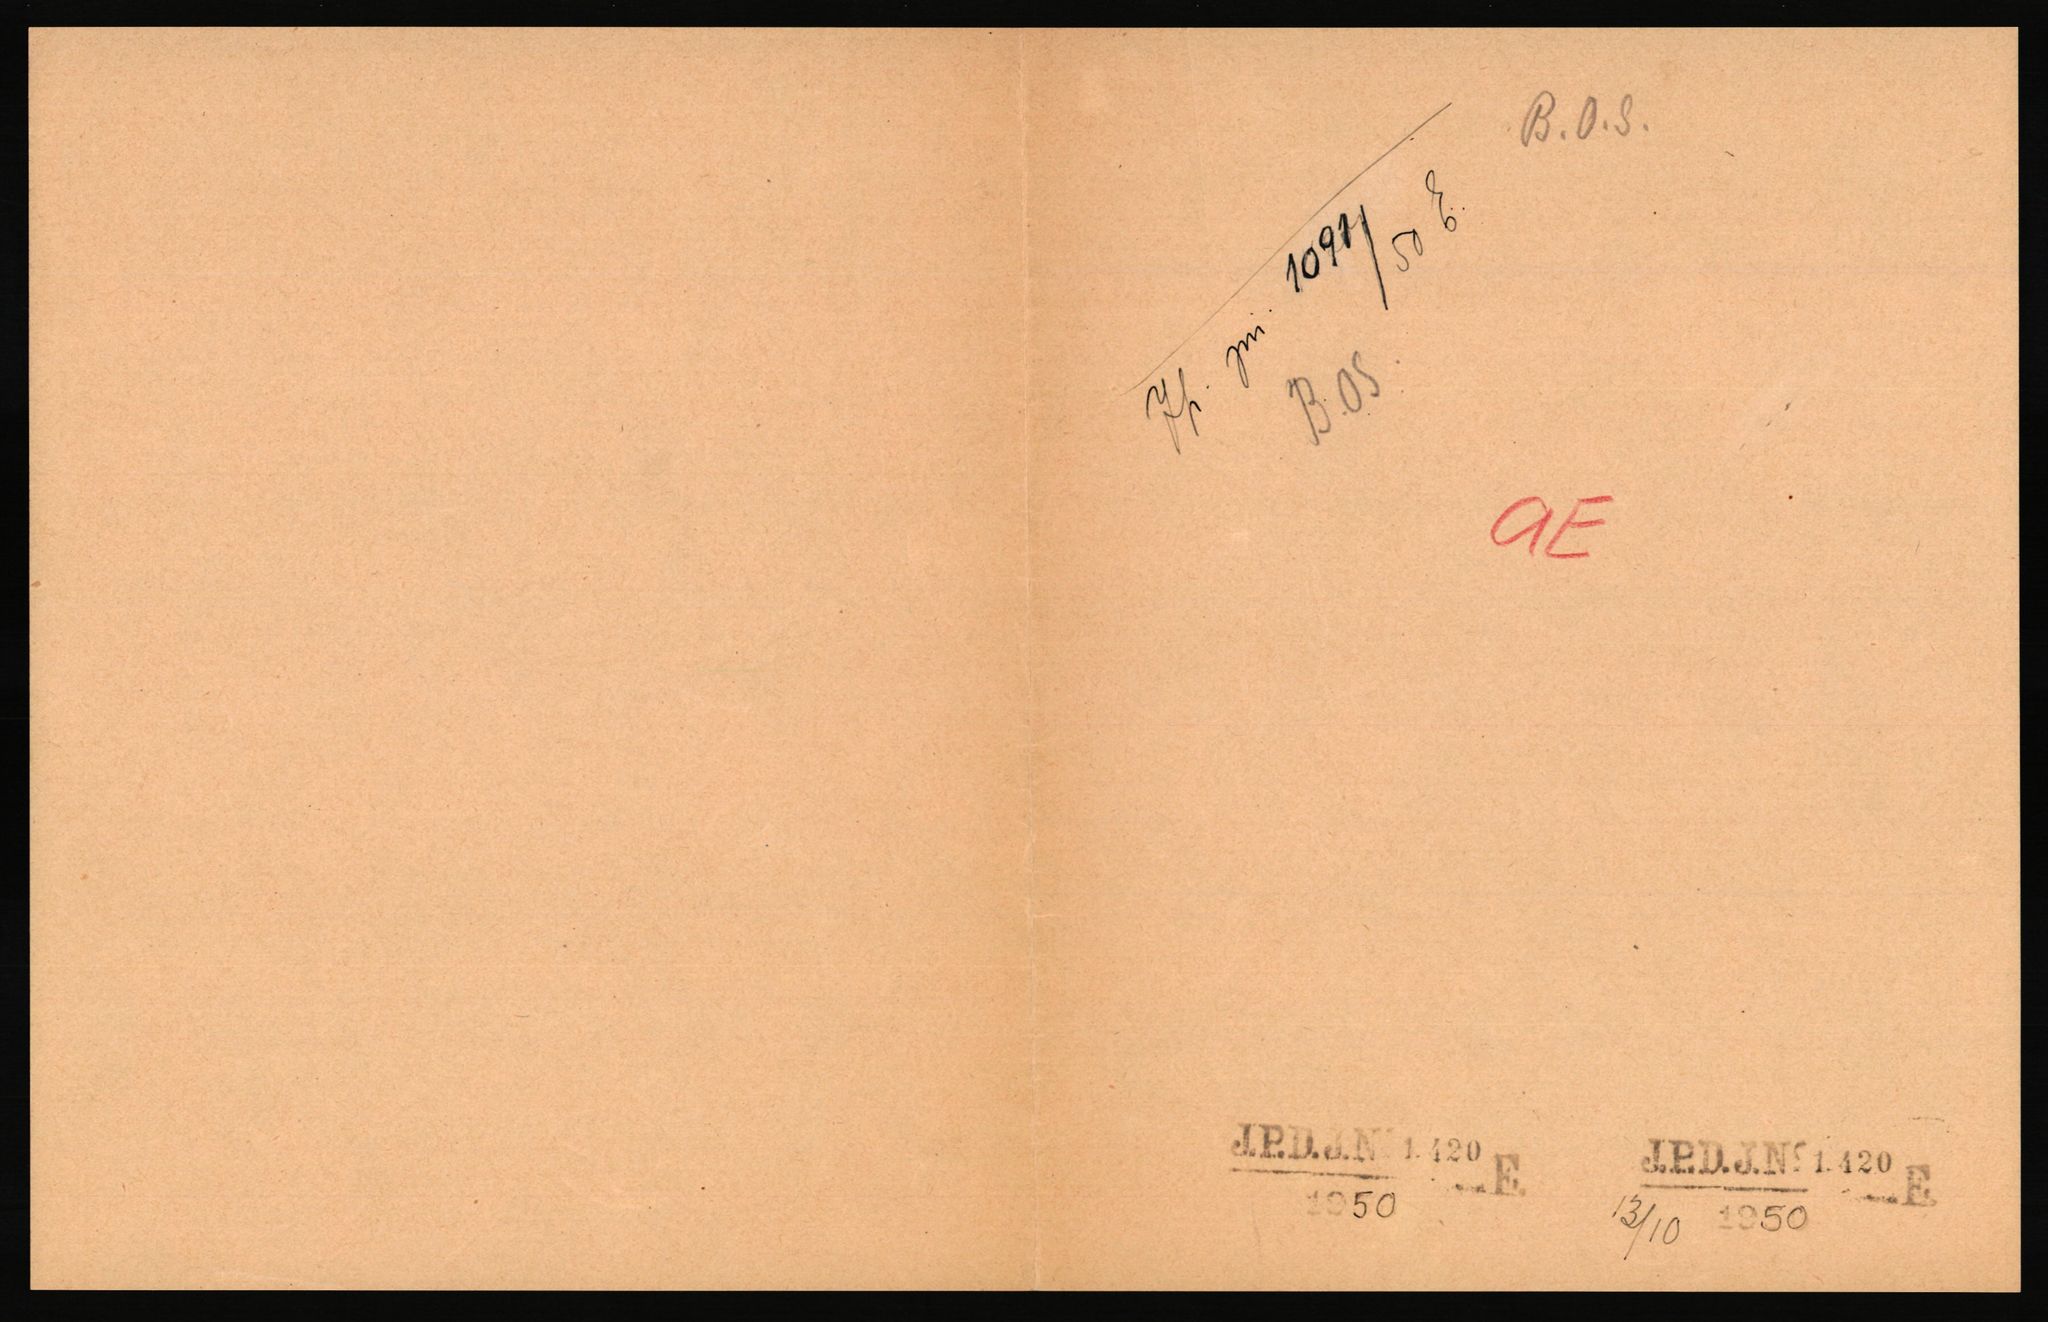 B.O.S.
Jp. jnr. 1091/50 E.
B.OS.
AE
J.P.D.J.Nº 1.420 E.
1950
J.P.D.J.Nº 1.420 E.
13/10 1950